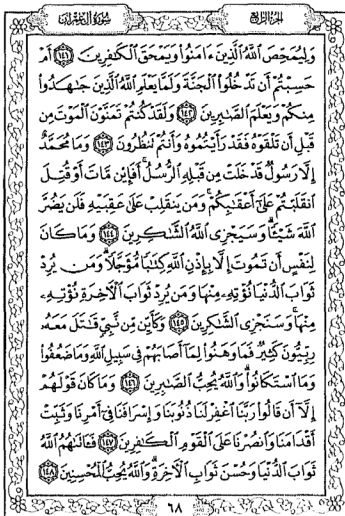 الجزء الرابع
سورة آل عمران
وَلِيُمَحِّصَ اللَّهُ الَّذِينَ ءَامَنُوا وَيَمْحَقَ الْكَٰفِرِينَ ١٤١ أَمْ
حَسِبْتُمْ أَن تَدْخُلُوا الْجَنَّةَ وَلَمَّا يَعْلَمِ اللَّهُ الَّذِينَ جَٰهَدُوا
مِنكُمْ وَيَعْلَمَ الصَّٰبِرِينَ ١٤٢ وَلَقَدْ كُنتُمْ تَمَنَّوْنَ الْمَوْتَ مِن
قَبْلِ أَن تَلْقَوْهُ فَقَدْ رَأَيْتُمُوهُ وَأَنتُمْ تَنظُرُونَ ١٤٣ وَمَا مُحَمَّدٌ
إِلَّا رَسُولٌ قَدْ خَلَتْ مِن قَبْلِهِ الرُّسُلُ أَفَإِيْن مَّاتَ أَوْ قُتِلَ
انقَلَبْتُمْ عَلَىٰ أَعْقَٰبِكُمْ وَمَن يَنقَلِبْ عَلَىٰ عَقِبَيْهِ فَلَن يَضُرَّ
اللَّهَ شَيْـًٔا وَسَيَجْزِى اللَّهُ الشَّٰكِرِينَ ١٤٤ وَمَا كَانَ
لِنَفْسٍ أَن تَمُوتَ إِلَّا بِإِذْنِ اللَّهِ كِتَٰبًا مُّؤَجَّلًا وَمَن يُرِدْ
ثَوَابَ الدُّنْيَا نُؤْتِهِۦ مِنْهَا وَمَن يُرِدْ ثَوَابَ الْءَاخِرَةِ نُؤْتِهِۦ
مِنْهَا وَسَنَجْزِى الشَّٰكِرِينَ ١٤٥ وَكَأَيِّن مِّن نَّبِىٍّ قَٰتَلَ مَعَهُۥ
رِبِّيُّونَ كَثِيرٌ فَمَا وَهَنُوا لِمَا أَصَابَهُمْ فِى سَبِيلِ اللَّهِ وَمَا ضَعُفُوا
وَمَا اسْتَكَانُوا وَاللَّهُ يُحِبُّ الصَّٰبِرِينَ ١٤٦ وَمَا كَانَ قَوْلَهُمْ
إِلَّا أَن قَالُوا رَبَّنَا اغْفِرْ لَنَا ذُنُوبَنَا وَإِسْرَافَنَا فِى أَمْرِنَا وَثَبِّتْ
أَقْدَامَنَا وَانصُرْنَا عَلَى الْقَوْمِ الْكَٰفِرِينَ ١٤٧ فَـَٔاتَىٰهُمُ اللَّهُ
ثَوَابَ الدُّنْيَا وَحُسْنَ ثَوَابِ الْءَاخِرَةِ وَاللَّهُ يُحِبُّ الْمُحْسِنِينَ ١٤٨
٦٨